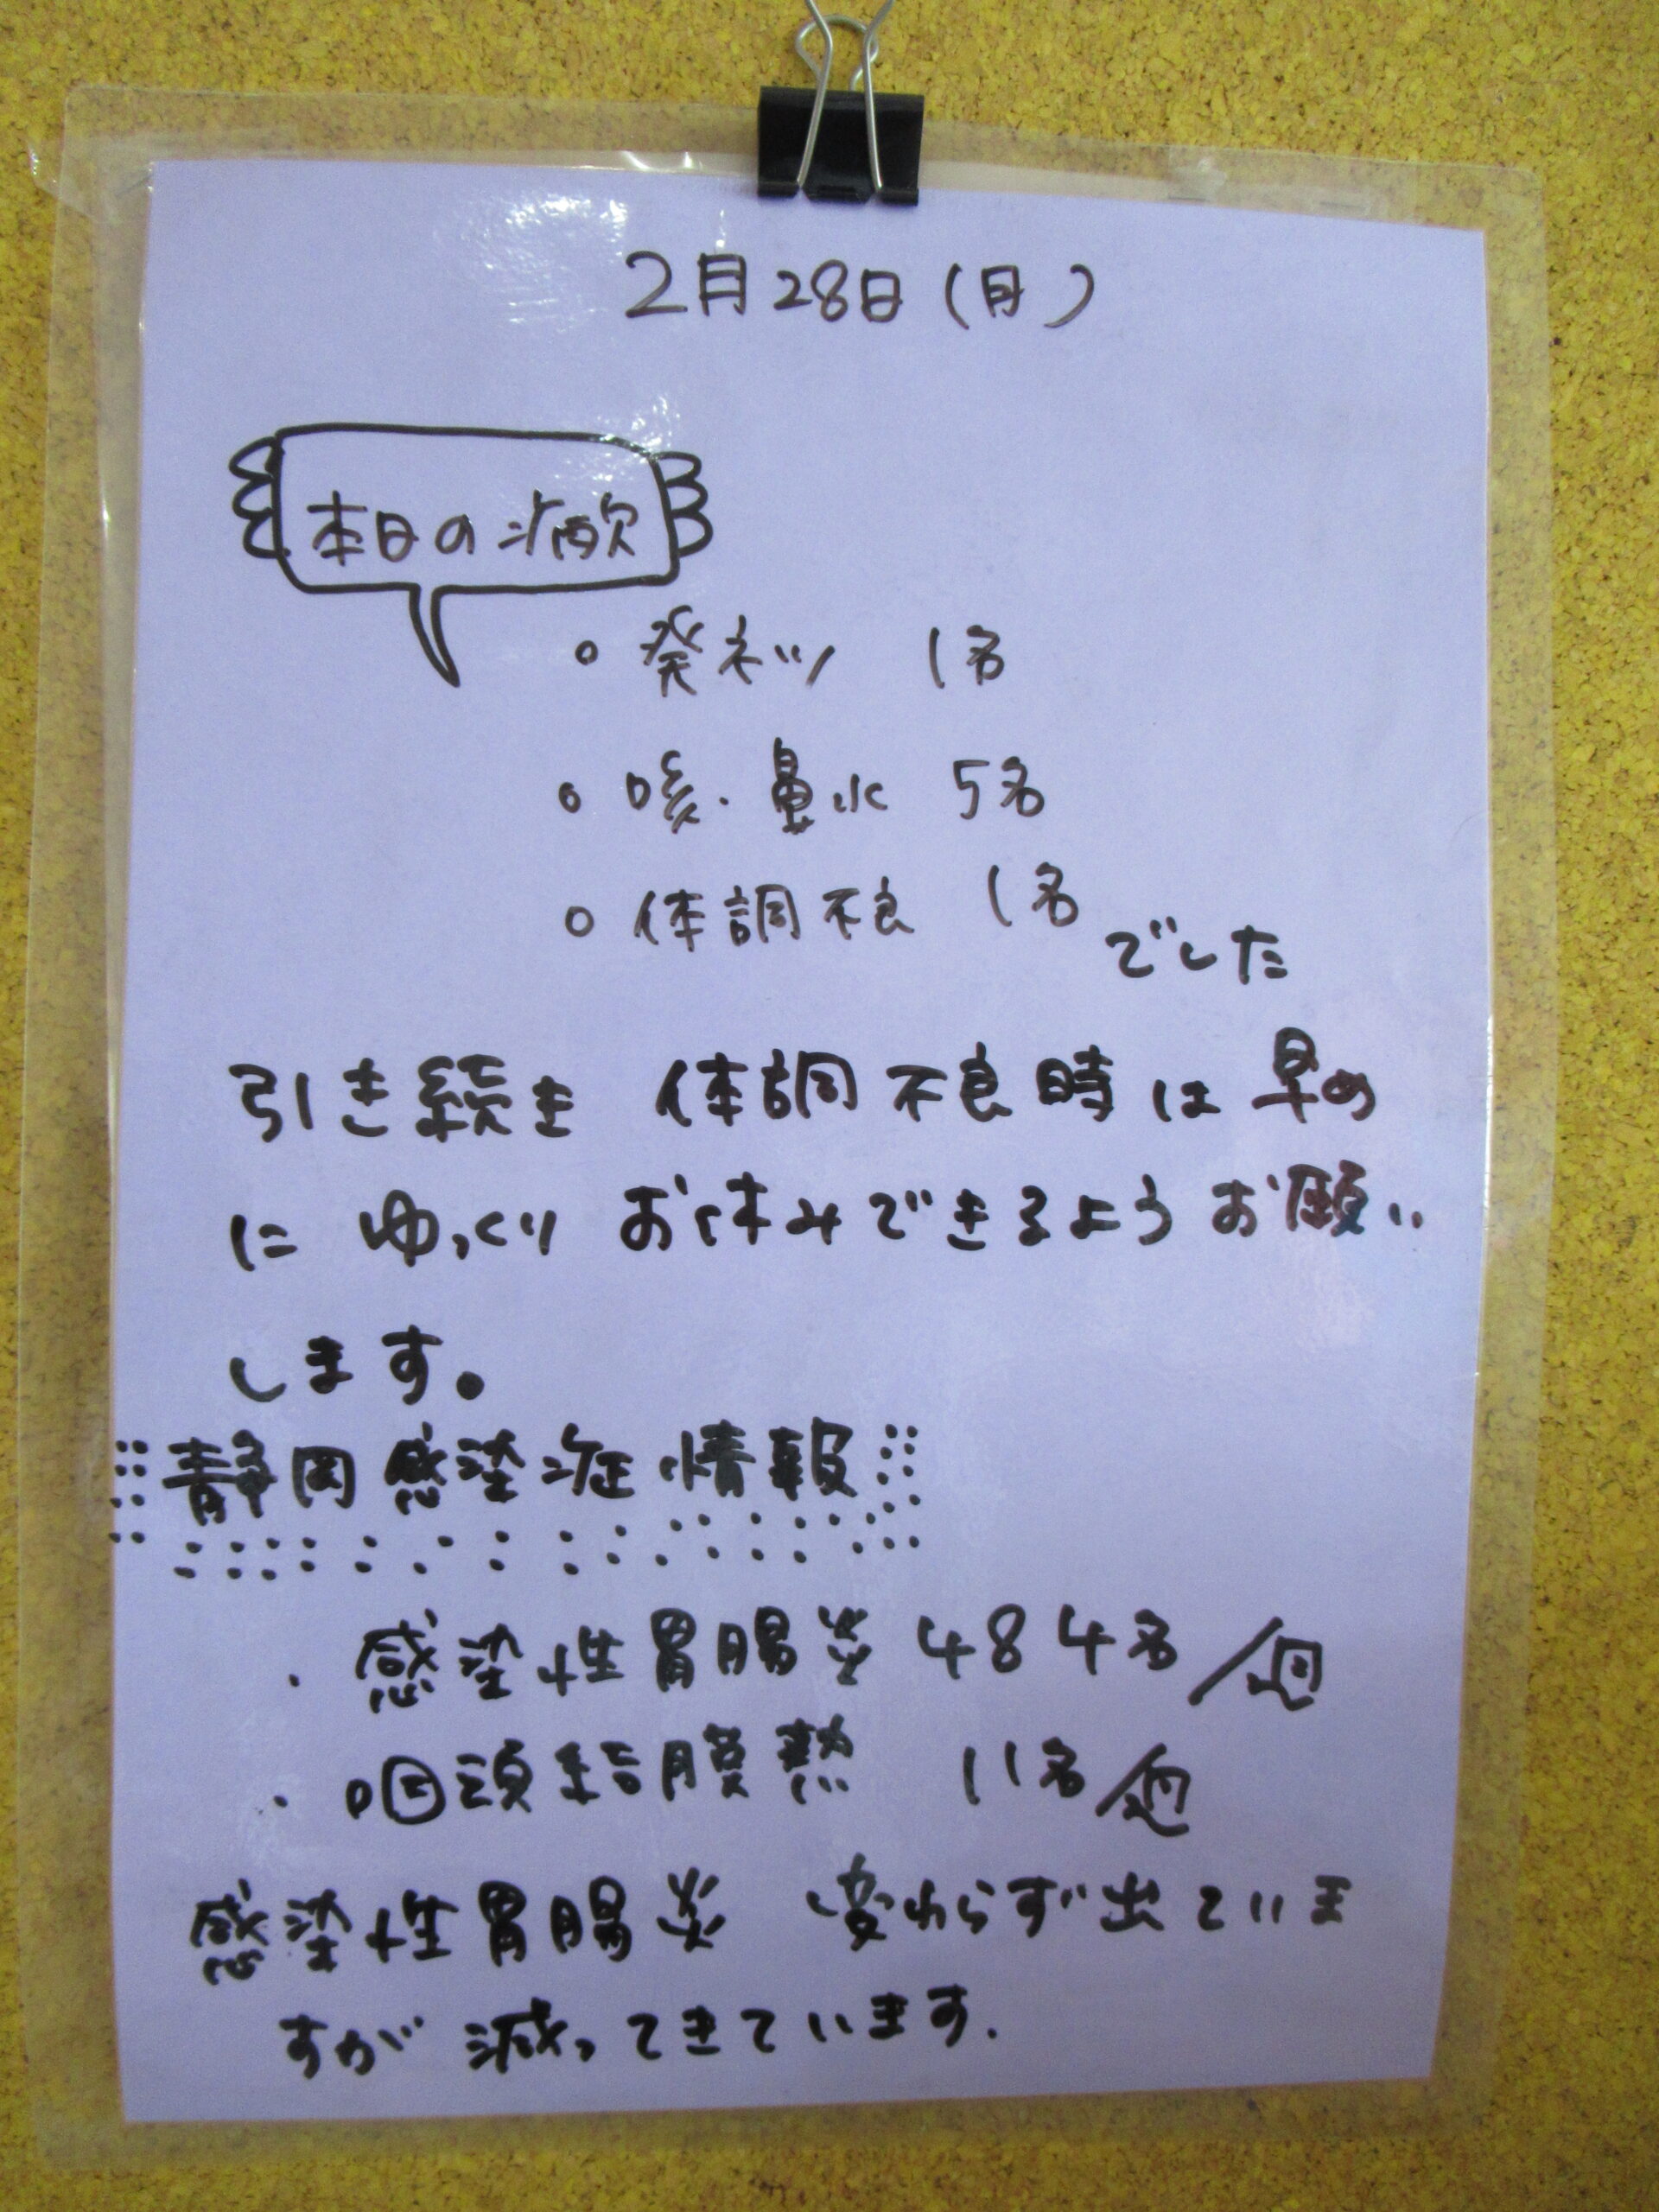 2月28日(月)
本日の病欠
○ 発ネツ 1名
○ 咳・鼻水 5名
○ 体調不良 1名
でした
引き続き 体調不良時は早め
に ゆっくり お休みできるようお願い
します。
静岡感染症情報
・感染性胃腸炎 484名/週
・咽頭結膜熱 11名/週
感染性胃腸炎 変わらず出ていま
すが 減ってきています.